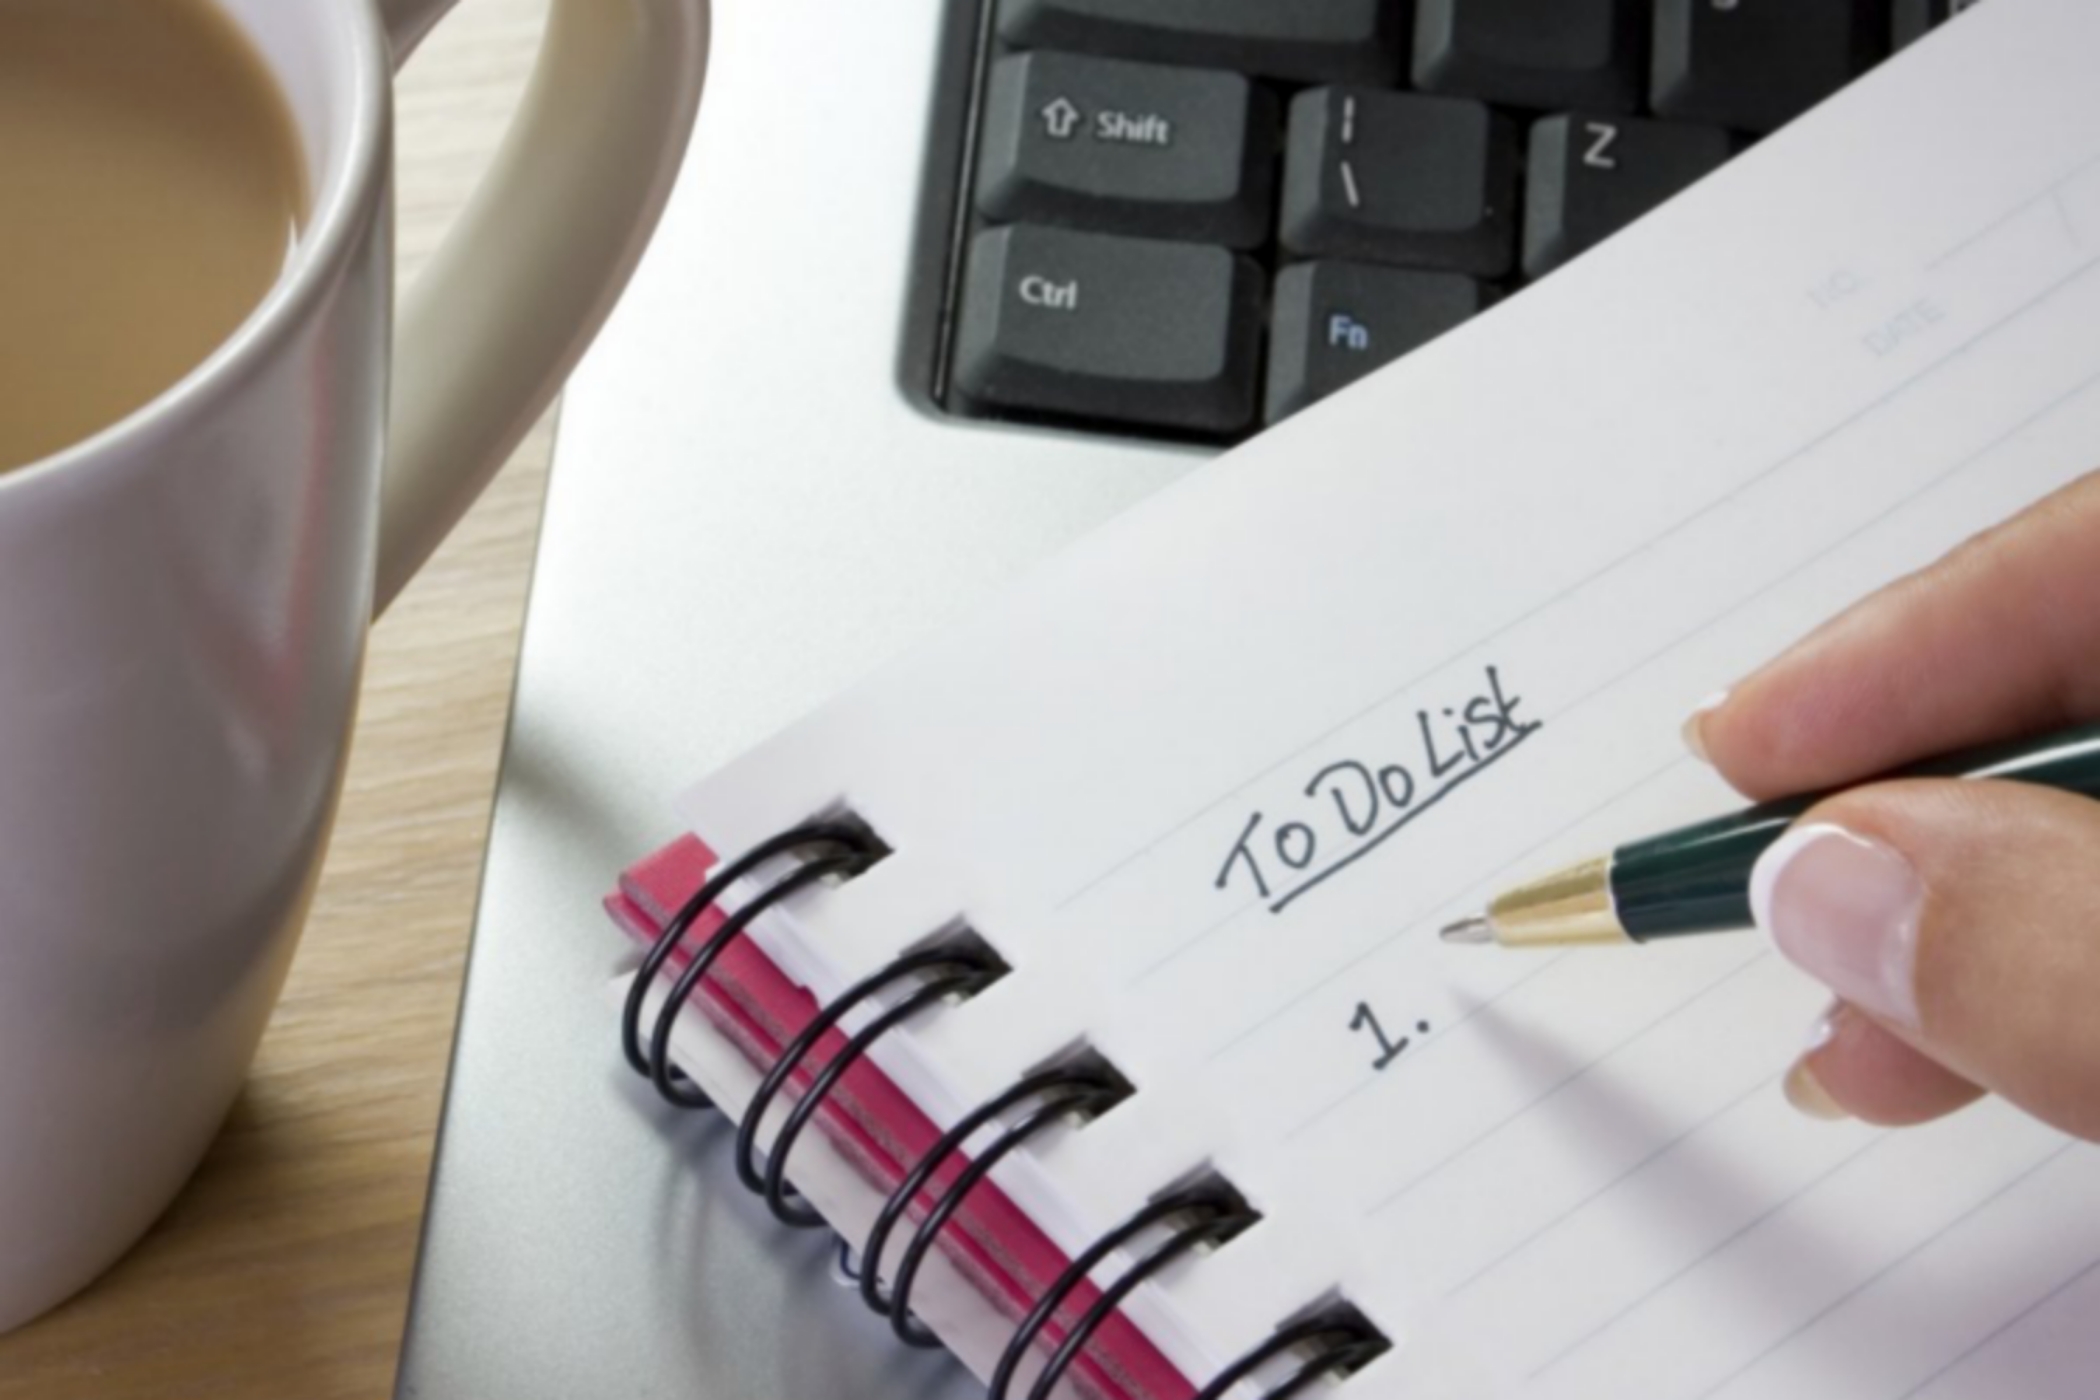 ⇧ Shift
|
\
Z
Ctrl
Fn
NO.
DATE
To Do List
1.